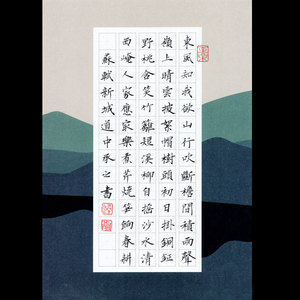 東風知我欲山行吹斷檐間積雨聲
嶺上晴雲披絮帽樹頭初日掛銅鉦
野桃含笑竹籬短溪柳自搖沙水清
西崦人家應㝡樂煮芹燒笋餉春耕
蘇軾新城道中承之書